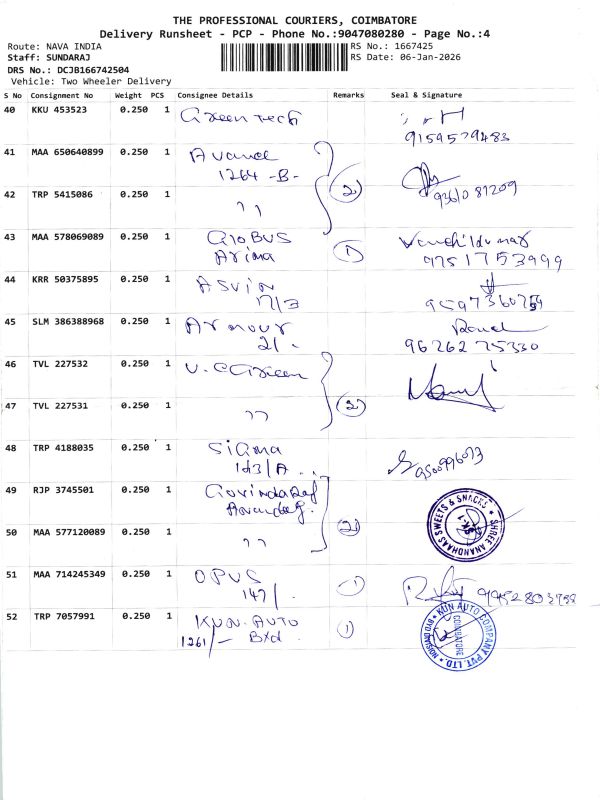 THE PROFESSIONAL COURIERS, COIMBATORE
Delivery Runsheet - PCP - Phone No.:9047080280 - Page No.:4
Route: NAVA INDIA RS No.: 1667425
Staff: SUNDARAJ RS Date: 06-Jan-2026
DRS No.: DCJB166742504
Vehicle: Two Wheeler Delivery
S No Consignment No Weight PCS Consignee Details Remarks Seal & Signature
40 KKU 453523 0.250 1 Green Tech
9159579483
41 MAA 650640899 0.250 1
1264 -B-
2
9361081209
42 TRP 5415086 0.250 1 ''
43 MAA 578069089 0.250 1 GloBUS
Arima
1
9751753999
44 KRR 50375895 0.250 1 ASVIN
17/3
45 SLM 386388968 0.250 1 Armour
21.
9626275330
46 TVL 227532 0.250 1 V. Green
47 TVL 227531 0.250 1 ''
2
48 TRP 4188035 0.250 1 Sigma
9500996073
49 RJP 3745501 0.250 1 Govindaraj
50 MAA 577120089 0.250 1 ''
2
SHREE ANANDHAAS SWEETS & SNACKS
51 MAA 714245349 0.250 1 OPUS
147/.
1
52 TRP 7057991 0.250 1 KUN. AUTO
1261/-
1
KUN AUTO COMPANY PVT. LTD. * BYD DIVISION *
COIMBATORE